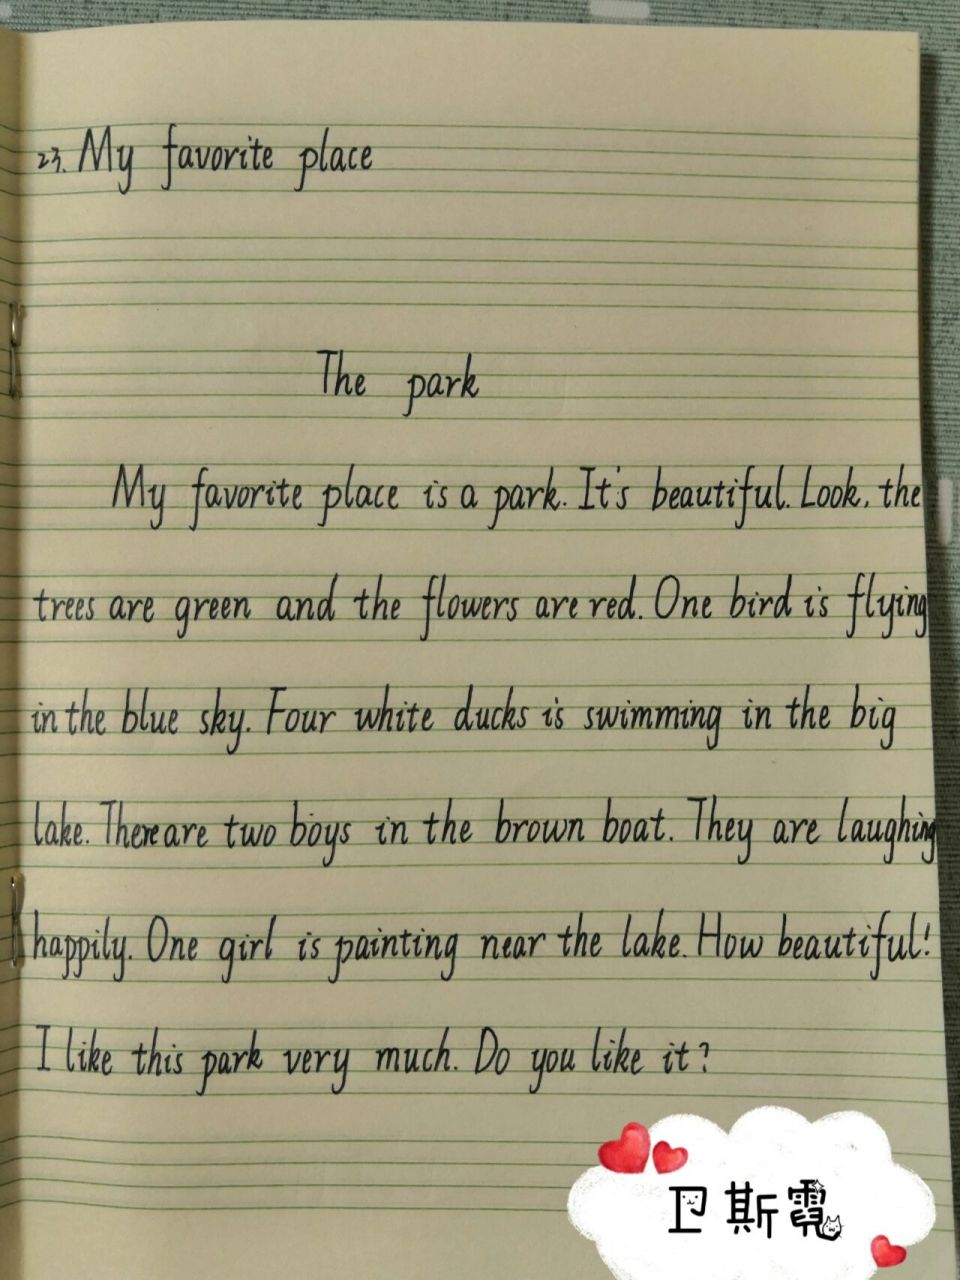 23. My favorite place
The park
My favorite place is a park. It's beautiful. Look, the
trees are green and the flowers are red. One bird is flying
in the blue sky. Four white ducks is swimming in the big
lake. There are two boys in the brown boat. They are laughing
happily. One girl is painting near the lake. How beautiful!
I like this park very much. Do you like it?
卫斯霓